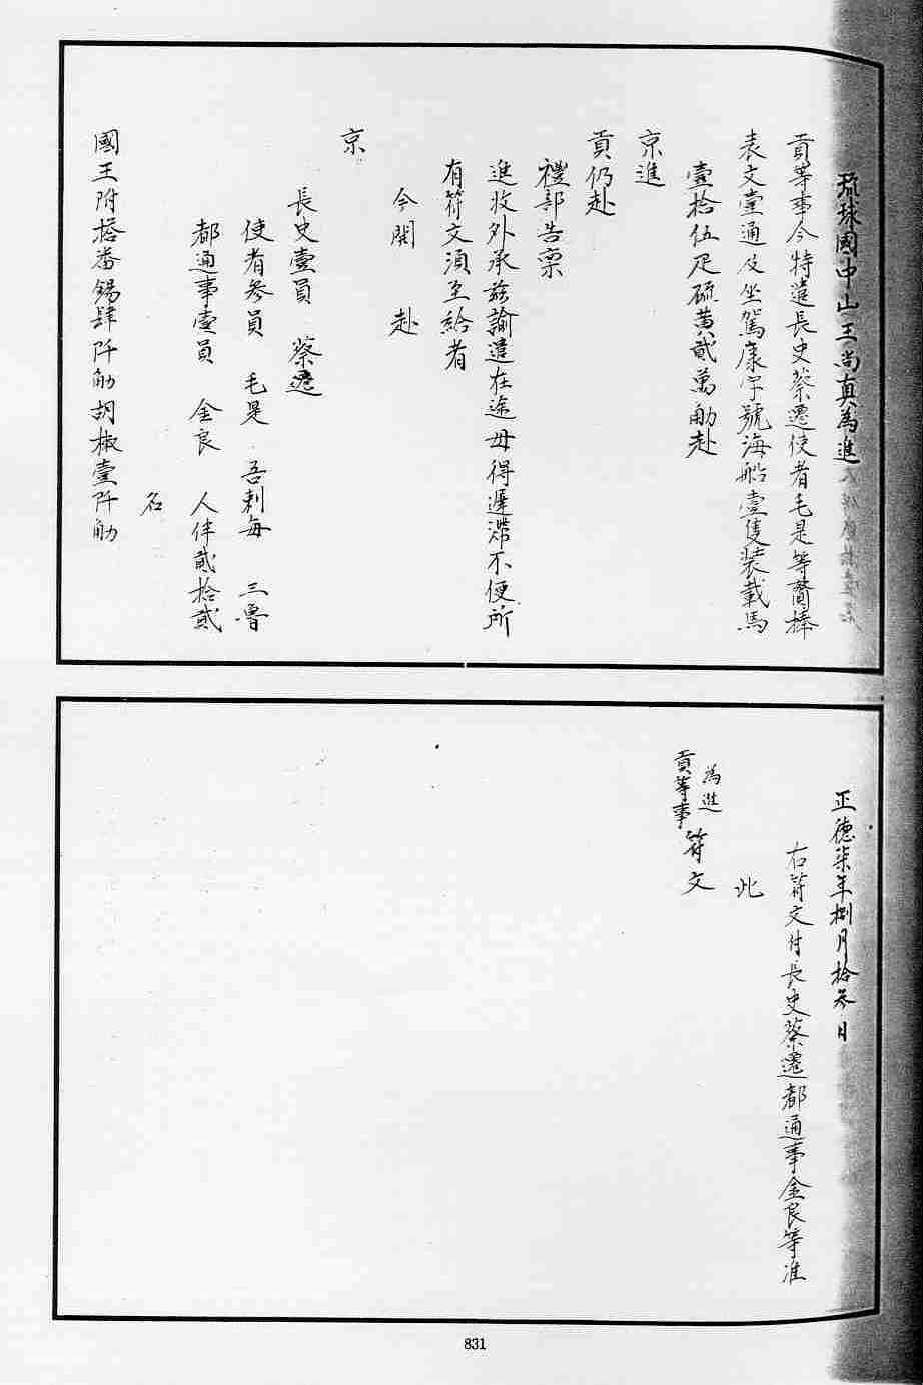 琉球國中山王尚真為進
貢等事今特遣長史蔡遷使者毛是等賫捧
表文壹通及坐駕康字號海船壹隻裝載馬
壹拾伍疋硫黄貳萬觔赴
京進
貢仍赴
禮部告稟
進收外承茲諭遣在途毋得遲滯不便所
有符文須至給者
今開 赴
京
長史壹員 蔡遷
使者參員 毛是 吾剌每 三魯
都通事壹員 金良 人伴貳拾貳
名
國王附搭番錫肆阡觔胡椒壹阡觔
正德柒年捌月拾參日
右符文付長史蔡遷都通事金良等准
此
為進
貢等事
符文
831